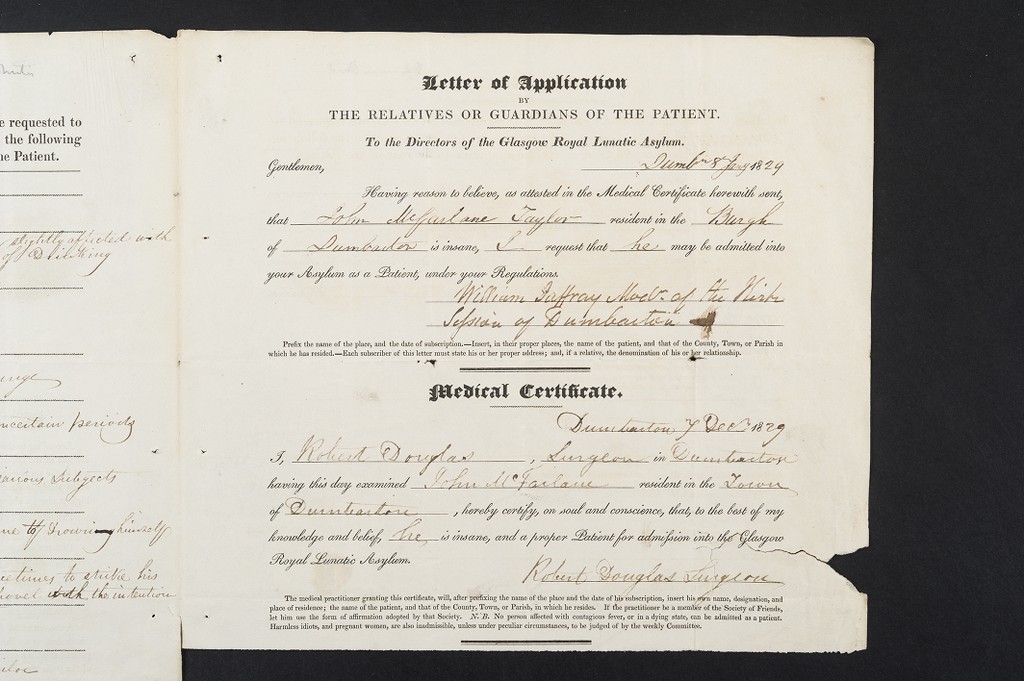 e requested to
the following
he Patient.
slightly affected with
of Drinking
uncertain periods
various Subjects
me to Drowning himself
metimes to strike his
with the intention
Letter of Application
BY
THE RELATIVES OR GUARDIANS OF THE PATIENT.
To the Directors of the Glasgow Royal Lunatic Asylum.
Gentlemen, 1829
Having reason to believe, as attested in the Medical Certificate herewith sent,
that John McFarlane Taylor resident in the Burgh
of Dumbarton is insane, I request that he may be admitted into
your Asylum as a Patient, under your Regulations.
William Jaffray Modr. of the Kirk
Session of Dumbarton
Prefix the name of the place, and the date of subscription.—Insert, in their proper places, the name of the patient, and that of the County, Town, or Parish in
which he has resided.—Each subscriber of this letter must state his or her proper address; and, if a relative, the denomination of his or her relationship.
Medical Certificate.
Dumbarton 7 Decr. 1829
I, Robert Douglas, Surgeon in Dumbarton
having this day examined John McFarlane resident in the Town
of Dumbarton, hereby certify, on soul and conscience, that, to the best of my
knowledge and belief, he is insane, and a proper Patient for admission into the Glasgow
Royal Lunatic Asylum.
Robert Douglas Surgeon
The medical practitioner granting this certificate, will, after prefixing the name of the place and the date of his subscription, insert his own name, designation, and
place of residence; the name of the patient, and that of the County, Town, or Parish, in which he resides. If the practitioner be a member of the Society of Friends,
let him use the form of affirmation adopted by that Society. N. B. No person affected with contagious fever, or in a dying state, can be admitted as a patient.
Harmless idiots, and pregnant women, are also inadmissible, unless under peculiar circumstances, to be judged of by the weekly Committee.